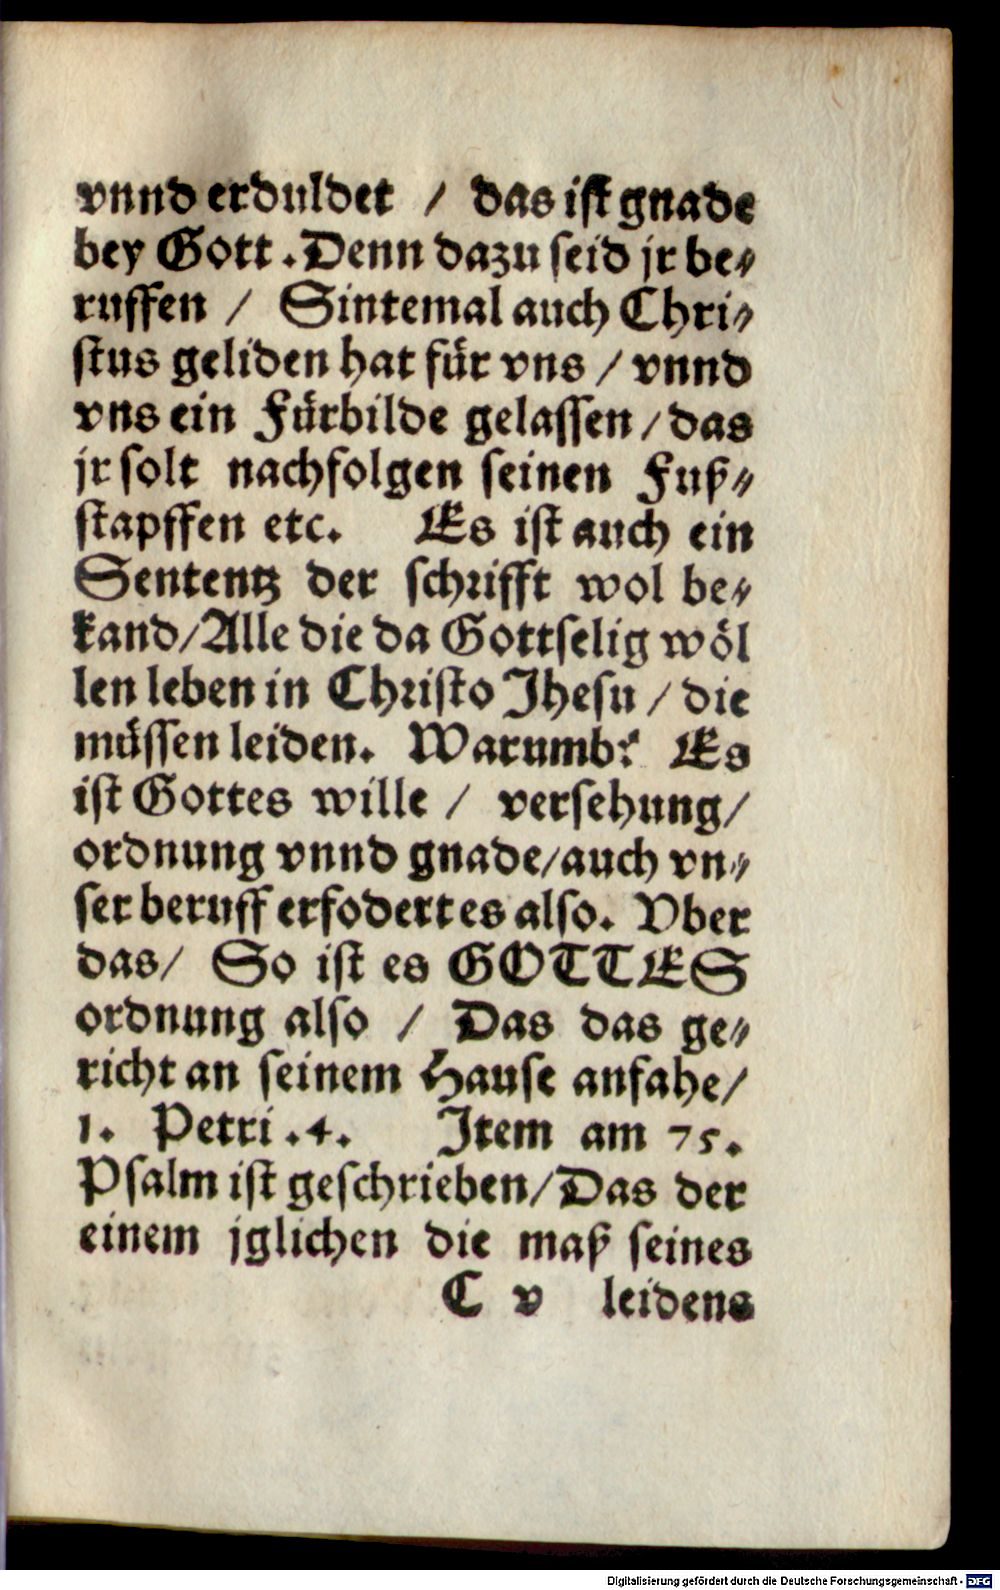 vnnd erduldet / das ist gnade
bey Gott. Denn dazu seid jr be⸗
ruffen / Sintemal auch Chri⸗
stus geliden hat für vns / vnnd
vns ein Fürbilde gelassen / das
jr solt nachfolgen seinen Fuß⸗
stapffen etc. Es ist auch ein
Sententz der schrifft wol be⸗
kand/Alle die da Gottselig wöl
len leben in Christo Jhesu / die
müssen leiden. Warumb? Es
ist Gottes wille / versehung/
ordnung vnnd gnade/auch vn⸗
ser beruff erfodert es also. Vber
das/ So ist es GOTTES
ordnung also / Das das ge⸗
richt an seinem Hause anfahe/
1. Petri .4. Item am 75.
Psalm ist geschrieben/Das der
einem jglichen die maß seines
C v leidens
Digitalisierung gefördert durch die Deutsche Forschungsgemeinschaft - DFG